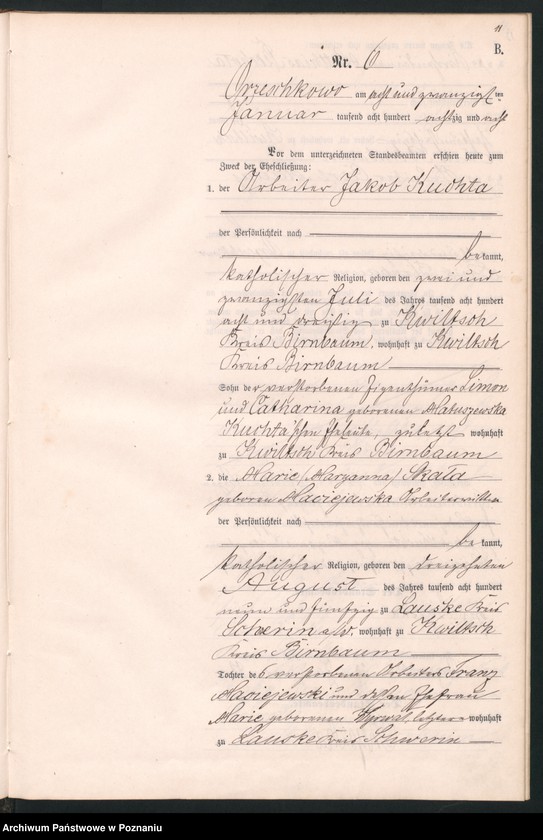 11
B.
Nr. 6
Orzeschkowo am acht und zwanzigsten
Januar tausend acht hundert achtzig und acht
Vor dem unterzeichneten Standesbeamten erschien heute zum
Zweck der Eheschließung:
1. der Arbeiter Jakob Kuchta
der Persönlichkeit nach
bekannt,
katholischer Religion, geboren den zwei und
zwanzigsten Juli des Jahres tausend acht hundert
acht und dreißig zu Kwiltsch
Kreis Birnbaum, wohnhaft zu Kwiltsch
Kreis Birnbaum
Sohn der verstorbenen Eigenthümer Simon
und Catharina geborenen Matuszewska
Kuchta'schen Eheleute, zuletzt wohnhaft
zu Kwiltsch Kreis Birnbaum
2. die Marie (Maryanna) Skała
geboren Maciejewska Arbeiterwittwe
der Persönlichkeit nach
bekannt,
katholischer Religion, geboren den dreizehnten
August des Jahres tausend acht hundert
neun und fünfzig zu Lauske Kreis
Schwerin a/W, wohnhaft zu Kwiltsch
Kreis Birnbaum
Tochter des verstorbenen Arbeiters Franz
Maciejewski und dessen Ehefrau
Marie geborenen letztere wohnhaft
zu Lauske Kreis Schwerin
Archiwum Państwowe w Poznaniu